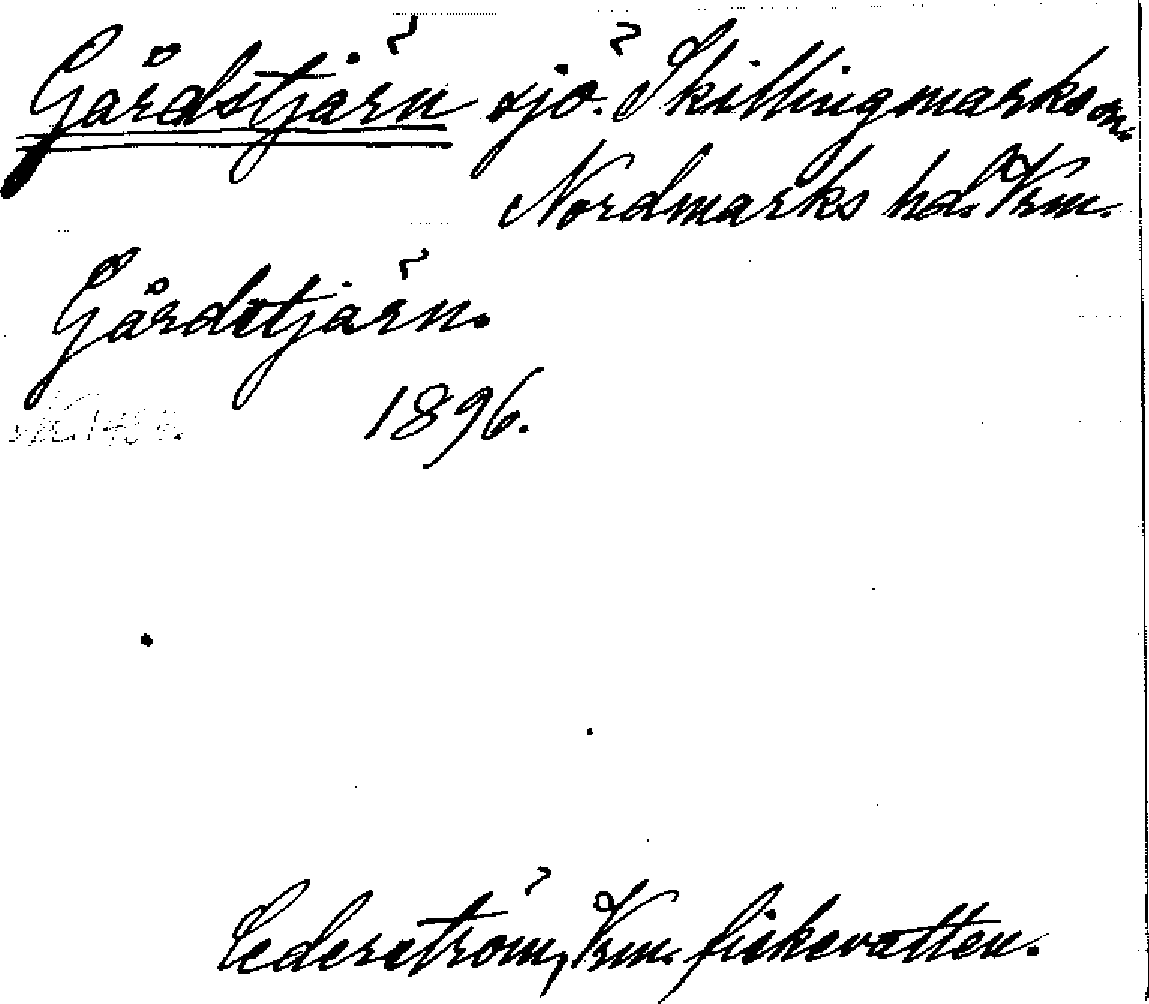 Gårdstjärn sjö. Skillingmarks sn.
Nordmarks hd. Vrm.
Gårdstjärn.
1896.
Cederström, Vrm. fiskevatten.